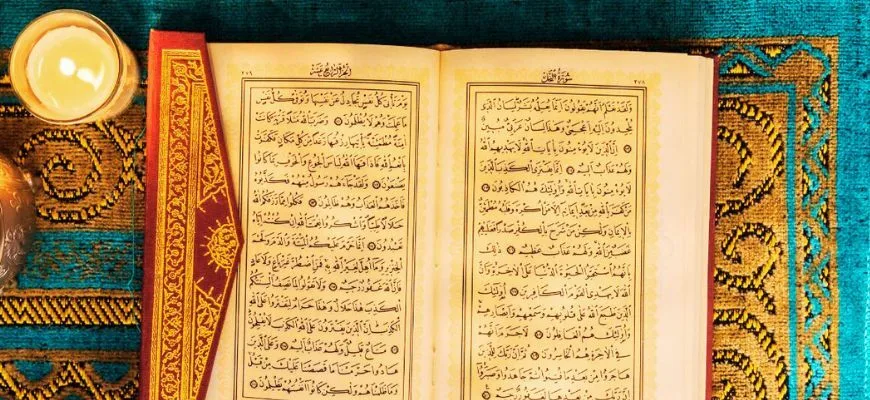 ٢٧٨
سورة النحل
ولقد نعلم أنهم يقولون إنما يعلمه بشر لسان الذي
يلحدون إليه أعجمي وهذا لسان عربي مبين
إن الذين لا يؤمنون بآيات الله لا يهديهم الله
ولهم عذاب أليم إنما يفتري الكذب الذين
لا يؤمنون بآيات الله وأولئك هم الكاذبون
من كفر بالله من بعد إيمانه إلا من أكره وقلبه مطمئن
بالإيمان ولكن من شرح بالكفر صدرا فعليهم
غضب من الله ولهم عذاب عظيم ذلك
بأنهم استحبوا الحيوة الدنيا على الآخرة وأن
الله لا يهدي القوم الكافرين أولئك
الذين طبع الله على قلوبهم وسمعهم وأبصارهم
وأولئك هم الغافلون لا جرم أنهم
في الآخرة هم الخاسرون ثم إن ربك للذين
هاجروا من بعد ما فتنوا ثم جاهدوا وصبروا
إن ربك من بعدها لغفور رحيم
الجزء الرابع عشر
٢٧٩
يوم تأتي كل نفس تجادل عن نفسها وتوفى كل نفس
ما عملت وهم لا يظلمون وضرب الله مثلا قرية كانت
آمنة مطمئنة يأتيها رزقها رغدا من كل مكان فكفرت
بأنعم الله فأذاقها الله لباس الجوع والخوف بما كانوا
يصنعون ولقد جاءهم رسول منهم فكذبوه
فأخذهم العذاب وهم ظالمون فكلوا مما رزقكم الله
حلالا طيبا واشكروا نعمت الله إن كنتم إياه
تعبدون إنما حرم عليكم الميتة والدم ولحم
الخنزير وما أهل لغير الله به فمن اضطر غير باغ ولا عاد
فإن الله غفور رحيم ولا تقولوا لما تصف ألسنتكم
الكذب هذا حلال وهذا حرام لتفتروا على الله
الكذب إن الذين يفترون على الله الكذب لا يفلحون
متاع قليل ولهم عذاب أليم وعلى الذين
هادوا حرمنا ما قصصنا عليك من قبل
وما ظلمناهم ولكن كانوا أنفسهم يظلمون